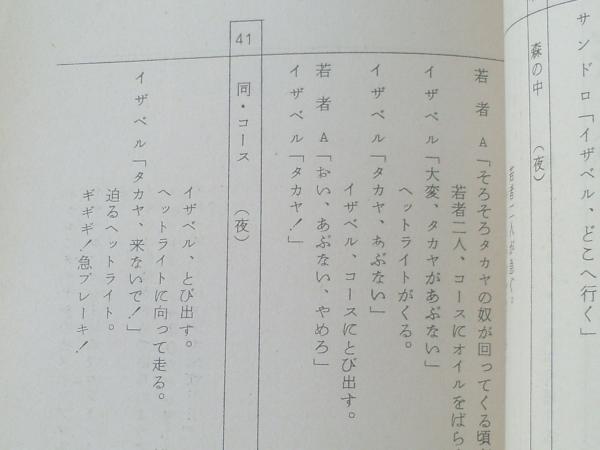 サンドロ「イザベル、どこへ行く」
森の中　（夜）
若者A「そろそろタカヤの奴が回ってくる頃
若者二人、コースにオイルをばら
イザベル「大変、タカヤがあぶない」
ヘットライトがくる。
イザベル「タカヤ、あぶない」
イザベル、コースにとび出す。
若者A「おい、あぶない、やめろ」
イザベル「タカヤ！」
41　同・コース　（夜）
イザベル、とび出す。
ヘットライトに向って走る。
イザベル「タカヤ、来ないで！」
迫るヘットライト。
ギギギ！急ブレーキ！